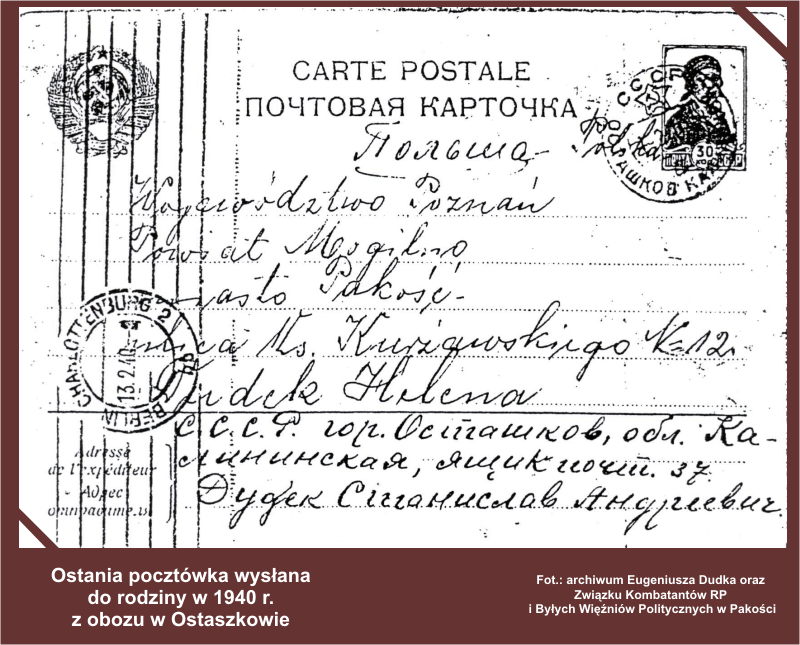 CARTE POSTALE
ПОЧТОВАЯ КАРТОЧКА
Польша
Województwo Poznań
Powiat Mogilno
Miasto Pakość
ulica Ks. Kurzawskiego № 12.
Dudek Helena
С.С.С.Р. гор. Осташков, обл. Ка-
лининская, ящик почт. 37
Дудек Станислав Андриевич.
Adresse
de l'expéditeur
Адрес
отправителя
CHARLOTTENBURG 2
13.2.40
BERLIN
СССР
ОСТАШКОВ
30
Ostania pocztówka wysłana
do rodziny w 1940 r.
z obozu w Ostaszkowie
Fot.: archiwum Eugeniusza Dudka oraz
Związku Kombatantów RP
i Byłych Więźniów Politycznych w Pakości